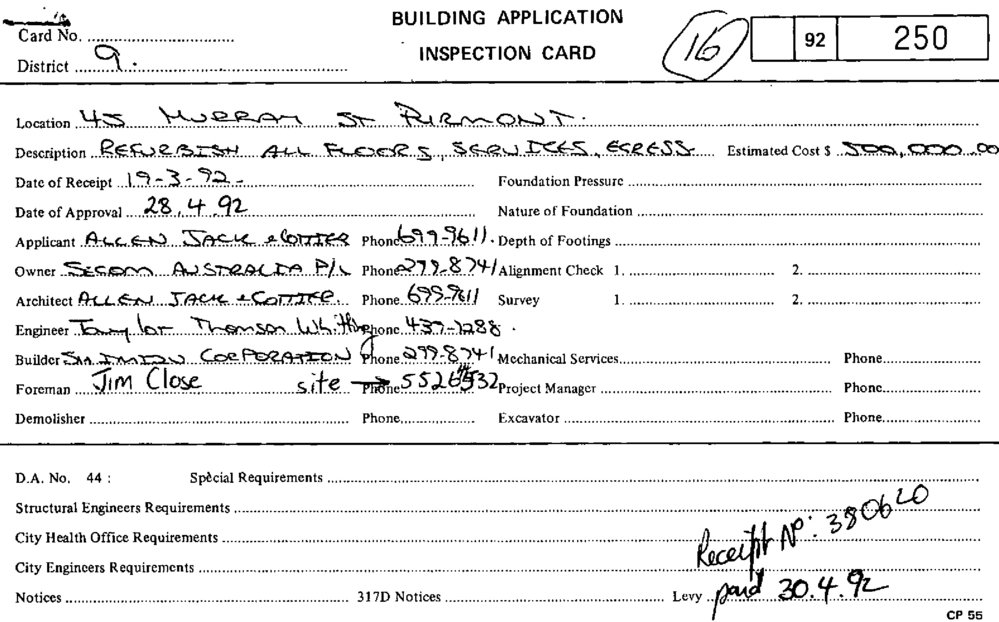 BUILDING APPLICATION
INSPECTION CARD
Card No.
District 9.
16
92 250
Location 45 MURRAY ST PYRMONT.
Description REFURBISH ALL FLOORS, SERVICES, EGRESS. Estimated Cost $ 500,000.00
Date of Receipt 19-3-92- Foundation Pressure
Date of Approval 28.4.92 Nature of Foundation
Applicant ALLEN JACK & COTTIER Phone 699-9611. Depth of Footings
Owner SECOM AUSTRALIA P/L Phone 299-8741 Alignment Check 1. 2.
Architect ALLEN JACK & COTTIER. Phone 699-9611 Survey 1. 2.
Engineer Taylor Thomson Whitting Phone 439-7288.
Builder CORPORATION Phone 299-8741 Mechanical Services Phone
Foreman Jim Close site → Phone Project Manager Phone
Demolisher Phone Excavator Phone
D.A. No. 44 : Special Requirements
Structural Engineers Requirements
City Health Office Requirements
City Engineers Requirements
Receipt No: 380620
Notices 317D Notices Levy paid 30.4.92
CP 55